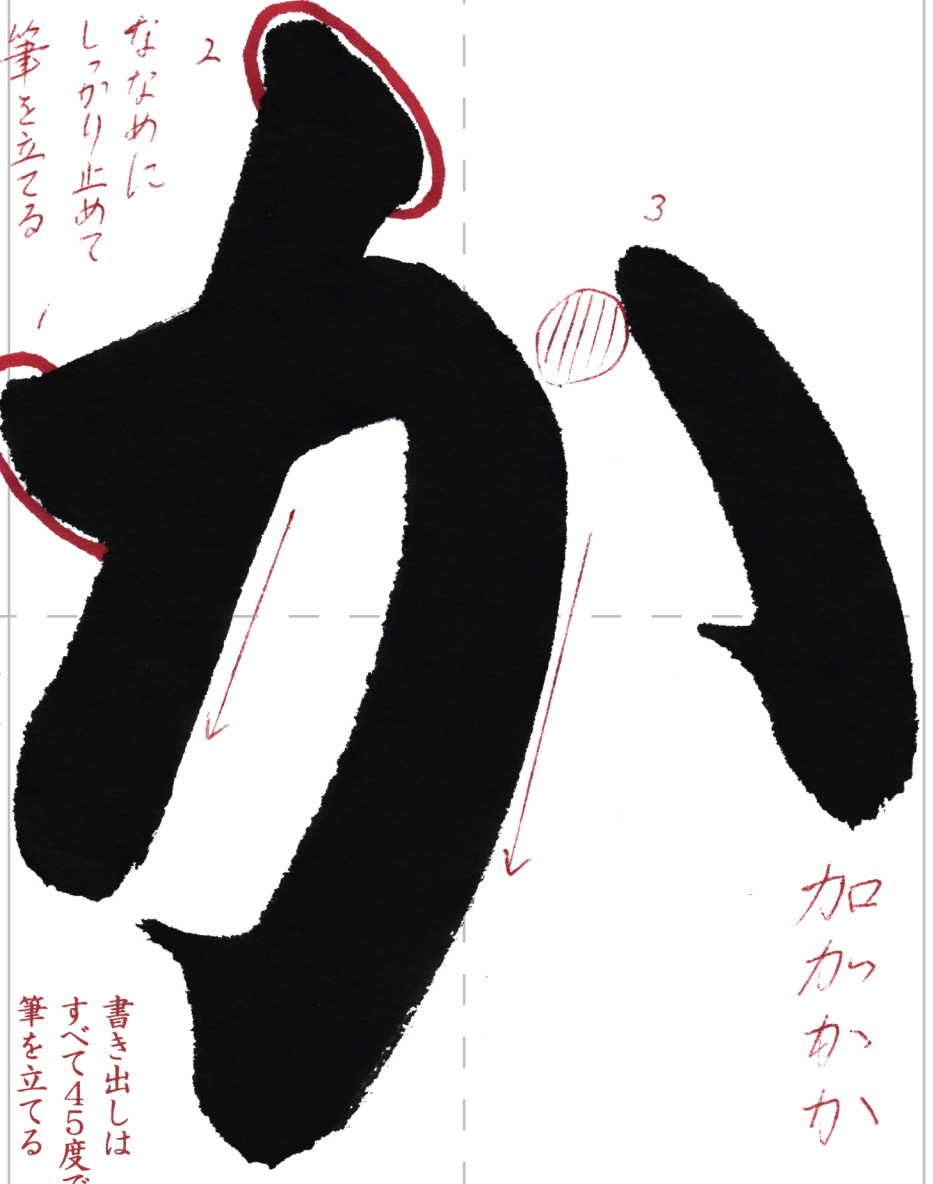 か
3
2
ななめに
しっかり止めて
筆を立てる
1
加
か
か
か
書き出しは
すべて45度で
筆を立てる